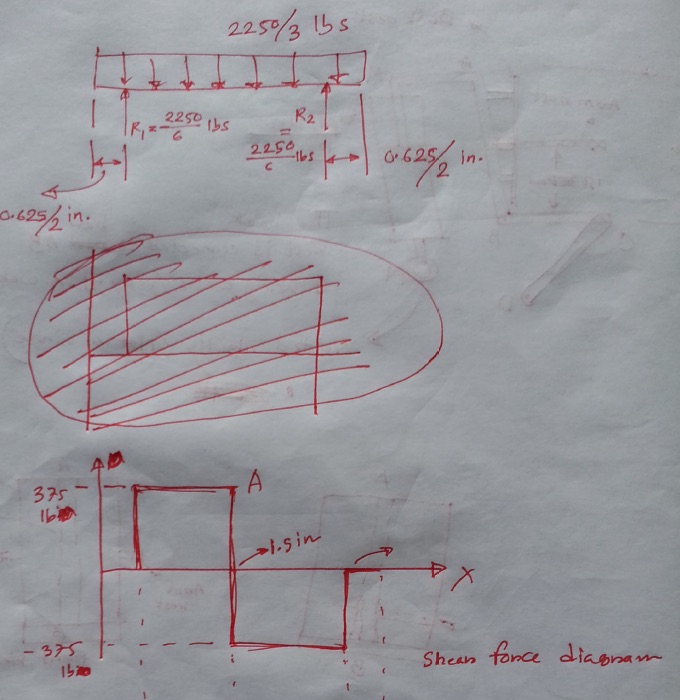 2250/3 lbs
R₁ = 2250/6 lbs
R₂ = 2250/6 lbs
0.625/2 in.
0.625/2 in.
375 lb
A
1.5in
X
-375 lb
Shear force diagram